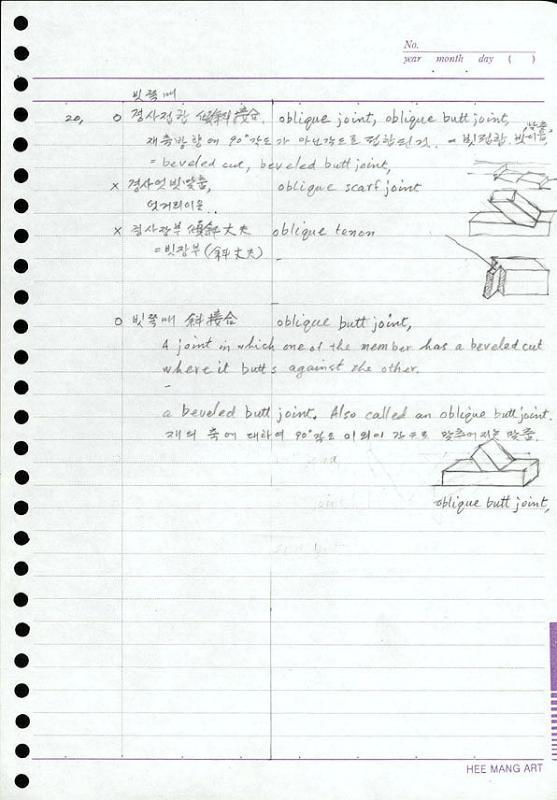 No.
year month day ( )
빗쪽매
20, o 경사접합 傾斜接合, oblique joint, oblique butt joint,
재축방향에 90°각도가 아닌각도로 접합된것. = 빗접합, 빗이음, 맞춤,
= beveled cut, beveled butt joint,
x 경사엇빗맞춤, oblique scarf joint
엇거리이음..
x 경사장부 傾斜丈夫 oblique tenon
=빗장부(斜丈夫)
o 빗쪽매 斜接合 oblique butt joint,
A joint in which one of the member has a beveled cut
where it butts against the other.
a beveled butt joint. Also called an oblique butt joint.
재의 축에 대하여 90°각도 이외의 각도로 맞추어지는 맞춤.
oblique butt joint,
HEE MANG ART